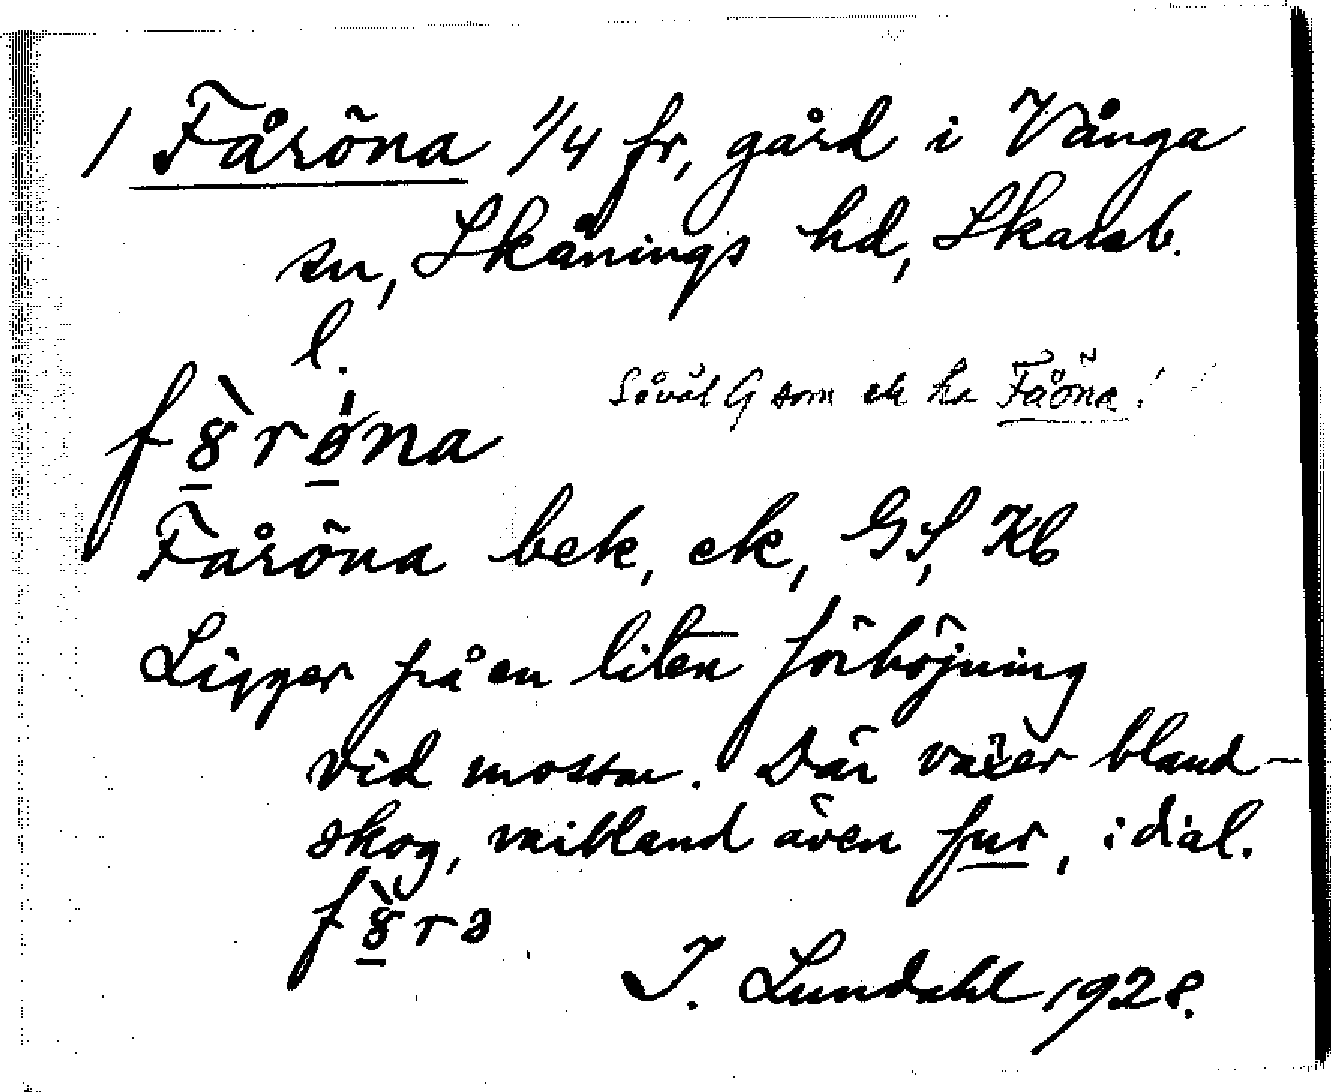 1 Fåröna 1/4 fr, gård i Vånga
sn, Skånings hd, Skarab.
l.
Såväl G som ek ha Fåöna!
f8̠̀rǿ̠na
Fåröna bek, ek, GS, Kb
Ligger på en liten förhöjning
vid mossar. Där växer bland-
skog, vaibland även fur, i dial.
f8̠̀rə
I. Lundahl 1928.